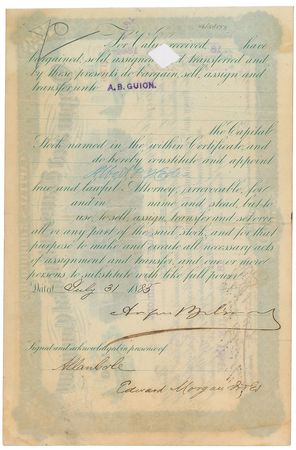 For Value received, have
bargained, sold, assigned and transferred and
by these presents do bargain, sell, assign and
transfer unto A. B. GUION.
the Capital
Stock named in the within Certificate, and
do hereby constitute and appoint
true and lawful Attorney, irrevocable, for
and in name and stead, but to
use, to sell, assign, transfer and set over
all or any part of the said stock, and for that
purpose to make and execute all necessary acts
of assignment and transfer, and one or more
persons to substitute with like full power.
Dated July 31 1885
Signed and acknowledged in presence of
Allan Cole
Edward Morgan